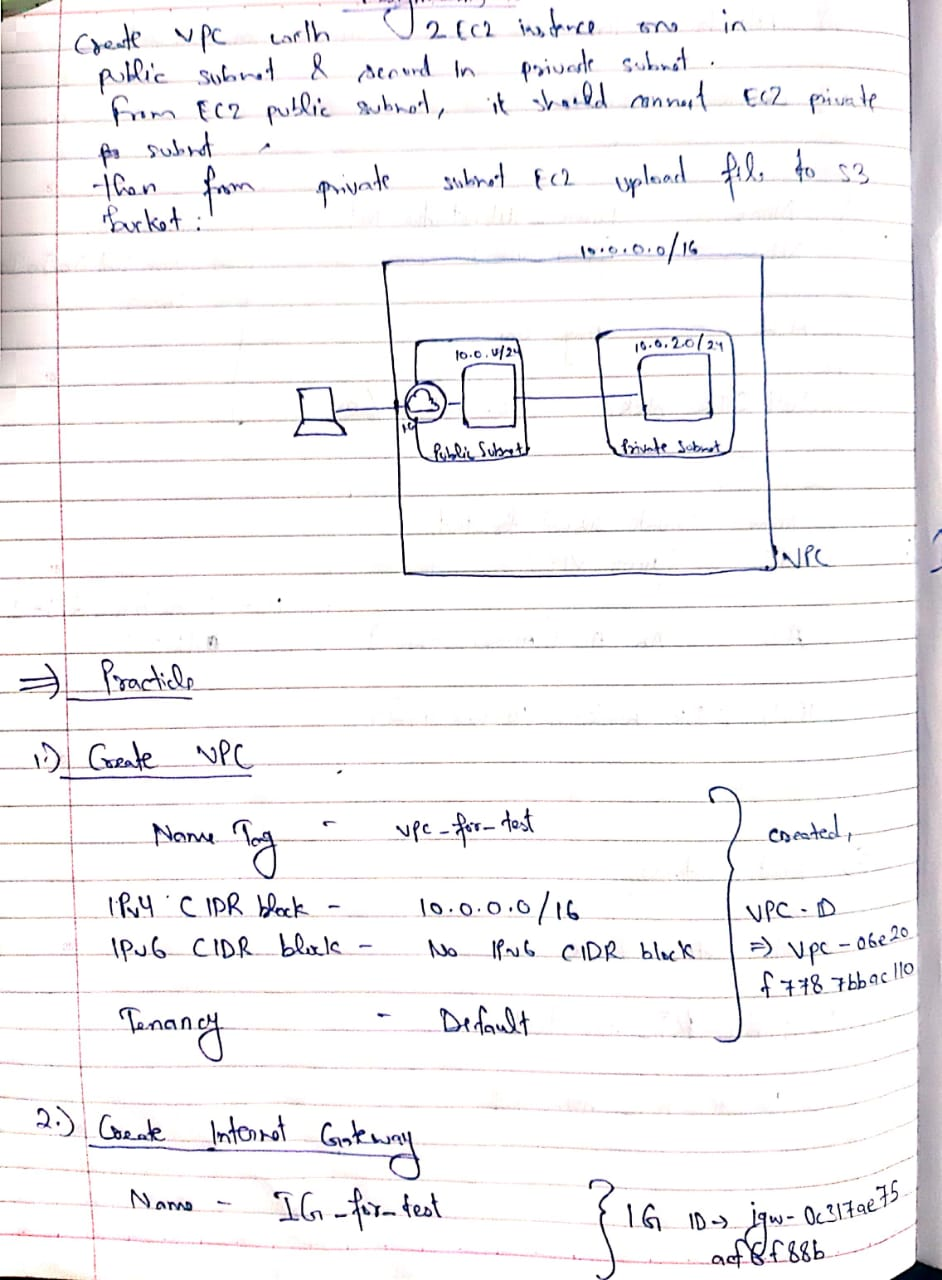 Create VPC with 2 EC2 instance one in
public subnet & second In private subnet.
From EC2 public subnet, it should connect EC2 private
subnet
Then from private subnet EC2 upload file to S3
bucket:
10.0.0.0/16
10.0.1/24
10.0.2.0/24
IG
Public Subnet
Private Subnet
VPC
⇒ Practicle
1.) Create VPC
Name Tag - vpc-for-test
IPv4 CIDR block - 10.0.0.0/16
IPv6 CIDR block - No IPv6 CIDR block
Tenancy - Default
created,
VPC-ID
⇒ vpc-06e20
f7787bbac110
2.) Create Internet Gateway
Name - IG-for-test
IG ID → igw-0c317ae75
acf8f88b